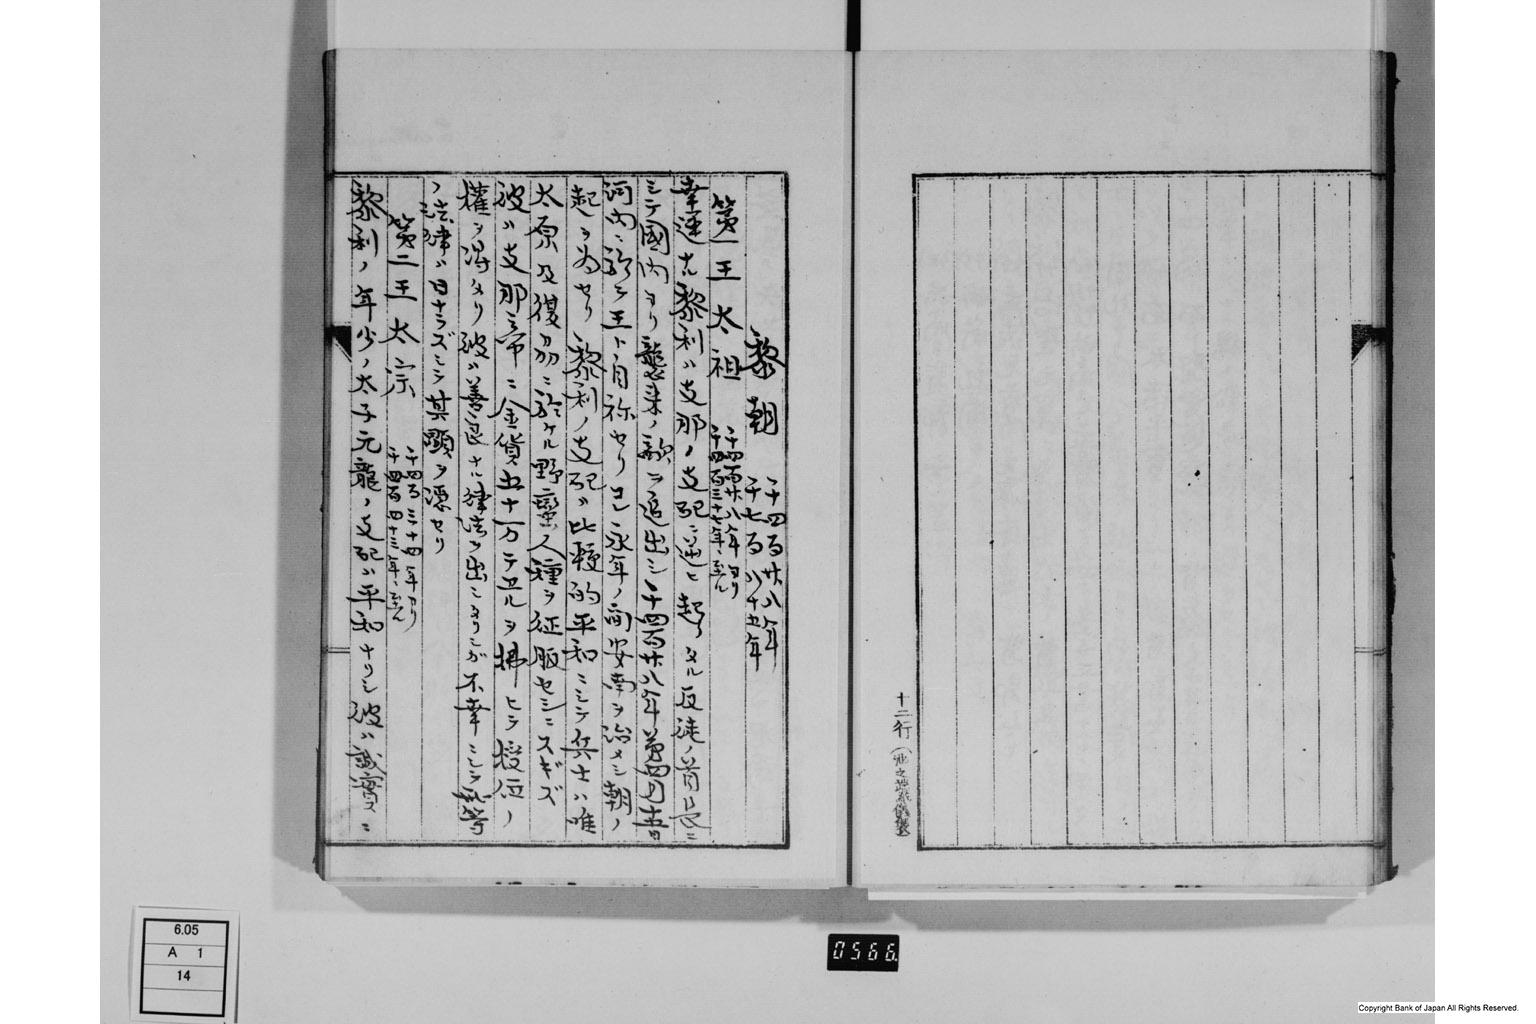 十二行
黎朝 千四百廿八年
千七百八十五年
第一王太祖 千四百廿八年ヨリ
千四百三十七年ニ至ル
幸運ナル黎利ハ支那ノ支配ニ逆ヒ起リタル反徒ノ首長ニ
シテ國内ヨリ襲来ノ敵ヲ追出シ千四百廿八年第四月十五日
河内ニ於テ王ト自称セリ 永年ノ間安南ヲ治メシ朝ノ
起ヲ為セリ黎利ノ支配ハ比較的平和ニシテ兵士ハ唯
太原及復劦ニ於ケル野蛮人種ヲ征服セシニスギズ
彼ハ支那帝ニ金貨五十万テールヲ拂ヒテ授位ノ
權ヲ得タリ彼ハ善良ナル律法ヲ出シタリシガ不幸ニシテ此等
ノ法律ハ日ナラズシテ其顕ヲ潜セリ
第二王太宗 千四百三十四年ヨリ
千四百四十三年ニ至ル
黎利ノ年少ノ太子元龍ノ支配ハ平和ナリシ彼ハ誠實ニ
6.05
A 1
14
0566
Copyright Bank of Japan All Rights Reserved.